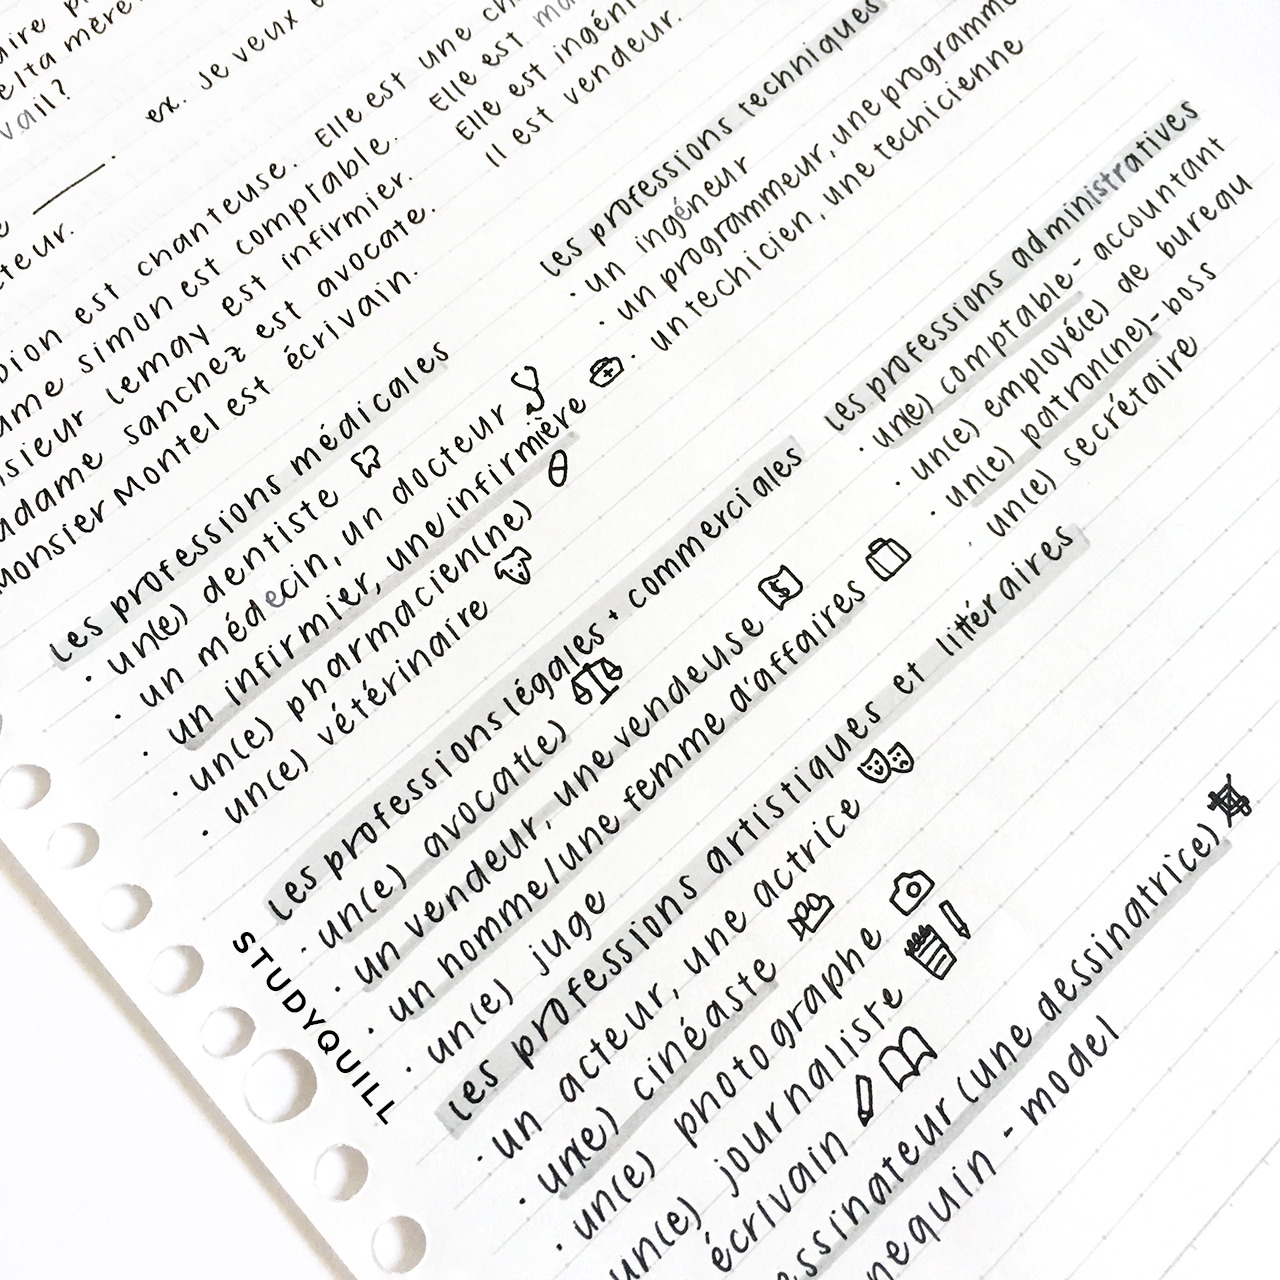 aire
elta mère
vail?
ex. je veux
teur.
Dion est chanteuse. Elle est une
ame simon est comptable. Elle est
nsieur lemay est infirmier. Elle est ingéni
adame sanchez est avocate. Il est vendeur.
Monsier Montel est écrivain.
Les professions médicales
· un(e) dentiste
· un médecin, un docteur
· un infirmier, une infirmière
· un(e) pharmacien(ne)
· un(e) vétérinaire
Les professions techniques
· un ingéneur
· un programmeur, une programme
· un techicien, une techicienne
Les professions légales + commerciales
· un(e) avocat(e)
· un vendeur, une vendeuse
· un homme/une femme d'affaires
· un(e) juge
Les professions administratives
· un(e) comptable - accountant
· un(e) employé(e) de bureau
· un(e) patron(ne) - boss
· un(e) secrétaire
Les professions artistiques et littéraires
· un acteur, une actrice
· un(e) cinéaste
· un(e) photographe
un(e) journaliste
écrivain
essinateur (une dessinatrice)
nequin - model
STUDYQUILL